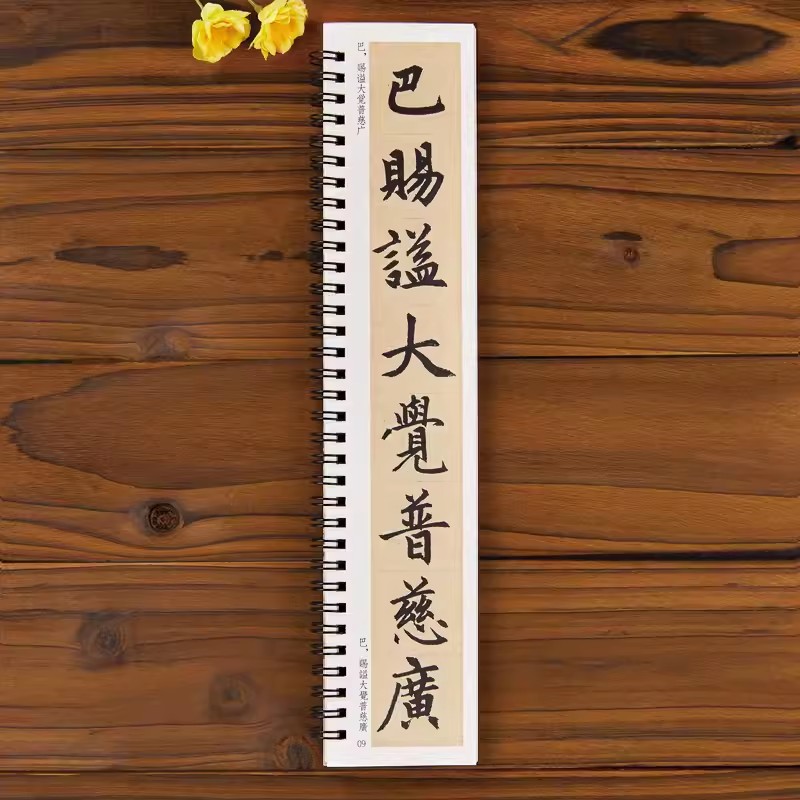 巴賜謚大覺普慈廣
巴，赐谥大觉普慈广
巴，賜謚大覺普慈廣
09